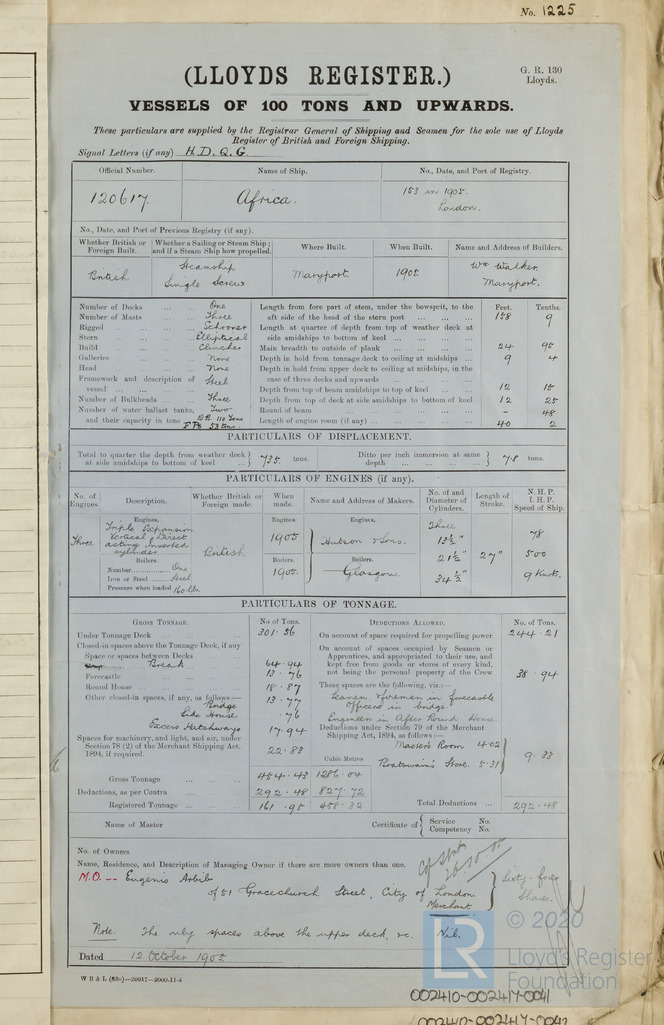 No. 1225
(LLOYDS REGISTER.)
G. R. 130
Lloyds.
VESSELS OF 100 TONS AND UPWARDS.
These particulars are supplied by the Registrar General of Shipping and Seamen for the sole use of Lloyds
Register of British and Foreign Shipping.
Signal Letters (if any) H.D.Q.G.
Official Number. Name of Ship. No., Date, and Port of Registry.
120617. Africa. 153 in 1905.
London.
No., Date, and Port of Previous Registry (if any).
Whether British or Foreign Built. Whether a Sailing or Steam Ship; and if a Steam Ship how propelled. Where Built. When Built. Name and Address of Builders.
British Steamship Single Screw Maryport 1905 Wm Walker. Maryport.
Number of Decks ... ... One
Number of Masts ... ... Three
Rigged ... ... Schooner
Stern ... ... Elliptical
Build ... ... Clincher
Galleries ... ... None
Head ... ... None
Framework and description of
vessel ... ... Steel
Number of Bulkheads ... Three
Number of water ballast tanks, Two
and their capacity in tons 110 Tons
53 tons
Feet. Tenths.
Length from fore part of stem, under the bowsprit, to the
aft side of the head of the stern post ... ... 158 9
Length at quarter of depth from top of weather deck at
side amidships to bottom of keel ... ...
Main breadth to outside of plank ... ... 24 95
Depth in hold from tonnage deck to ceiling at midships ... 9 4
Depth in hold from upper deck to ceiling at midships, in the
case of three decks and upwards
Depth from top of beam amidships to top of keel ... 12 15
Depth from top of deck at side amidships to bottom of keel 12 25
Round of beam ... ... - 48
Length of engine room (if any) ... ... 40 2
PARTICULARS OF DISPLACEMENT.
Total to quarter the depth from weather deck
at side amidships to bottom of keel ... ... } 735 tons.
Ditto per inch immersion at same
depth ... ... } 7.8 tons.
PARTICULARS OF ENGINES (if any).
No. of Engines. Description. Whether British or Foreign made. When made. Name and Address of Makers. No. of and Diameter of Cylinders. Length of Stroke. N.H.P. I.H.P. Speed of Ship.
Engines. Engines. Engines.
Three Triple Expansion
Vertical Direct
acting inverted
cylinders
British 1905 Hutson & Sons. Three
13½" 78
Boilers. Boilers. Boilers. 21½" 27" 500
Number One 1905. Glasgow. 34½" 9 Knots.
Iron or Steel Steel
Pressure when loaded 160 lbs.
PARTICULARS OF TONNAGE.
GROSS TONNAGE. No of Tons.
Under Tonnage Deck ... ... 301.56
Closed-in spaces above the Tonnage Deck, if any
Space or spaces between Decks
Break 64.94
Forecastle ... ... 13.76
Round House ... ... 18.87
Other closed-in spaces, if any, as follows—
Bridge 13.77
Side House .76
Excess Hatchways 17.94
Spaces for machinery, and light, and air, under
Section 78 (2) of the Merchant Shipping Act,
1894, if required. 22.83
Cubic Metres
Gross Tonnage 454.43 1286.04
Deductions, as per Contra ... 292.48 827.72
Registered Tonnage ... 161.95 458.32
DEDUCTIONS ALLOWED. No. of Tons.
On account of space required for propelling power 244.21
On account of spaces occupied by Seamen or
Apprentices, and appropriated to their use, and
kept free from goods or stores of every kind,
not being the personal property of the Crew 38.94
These spaces are the following, viz.:—
Seamen & firemen in forecastle
Officers in bridge.
Engineers in After Round House.
Deductions under Section 79 of the Merchant
Shipping Act, 1894, as follows:—
Master's Room 4.02
Boatswain's Store. 5.31 } 9.33
Total Deductions ... 292.48
Name of Master
Certificate of { Service No.
Competency No.
No. of Owners
Name, Residence, and Description of Managing Owner if there are more owners than one.
M.O. -- Eugenio Arbib
of 51 Gracechurch Street, City of London
Merchant
Sixty-four
Shares.
Note. The only spaces above the upper deck, &c. Nil.
Dated 12 October 1905
W B & L (83c)—20917—2000-11-4
LR
© 2020
Lloyd's Register
Foundation
002410-002417-0041
002410-002417-0042